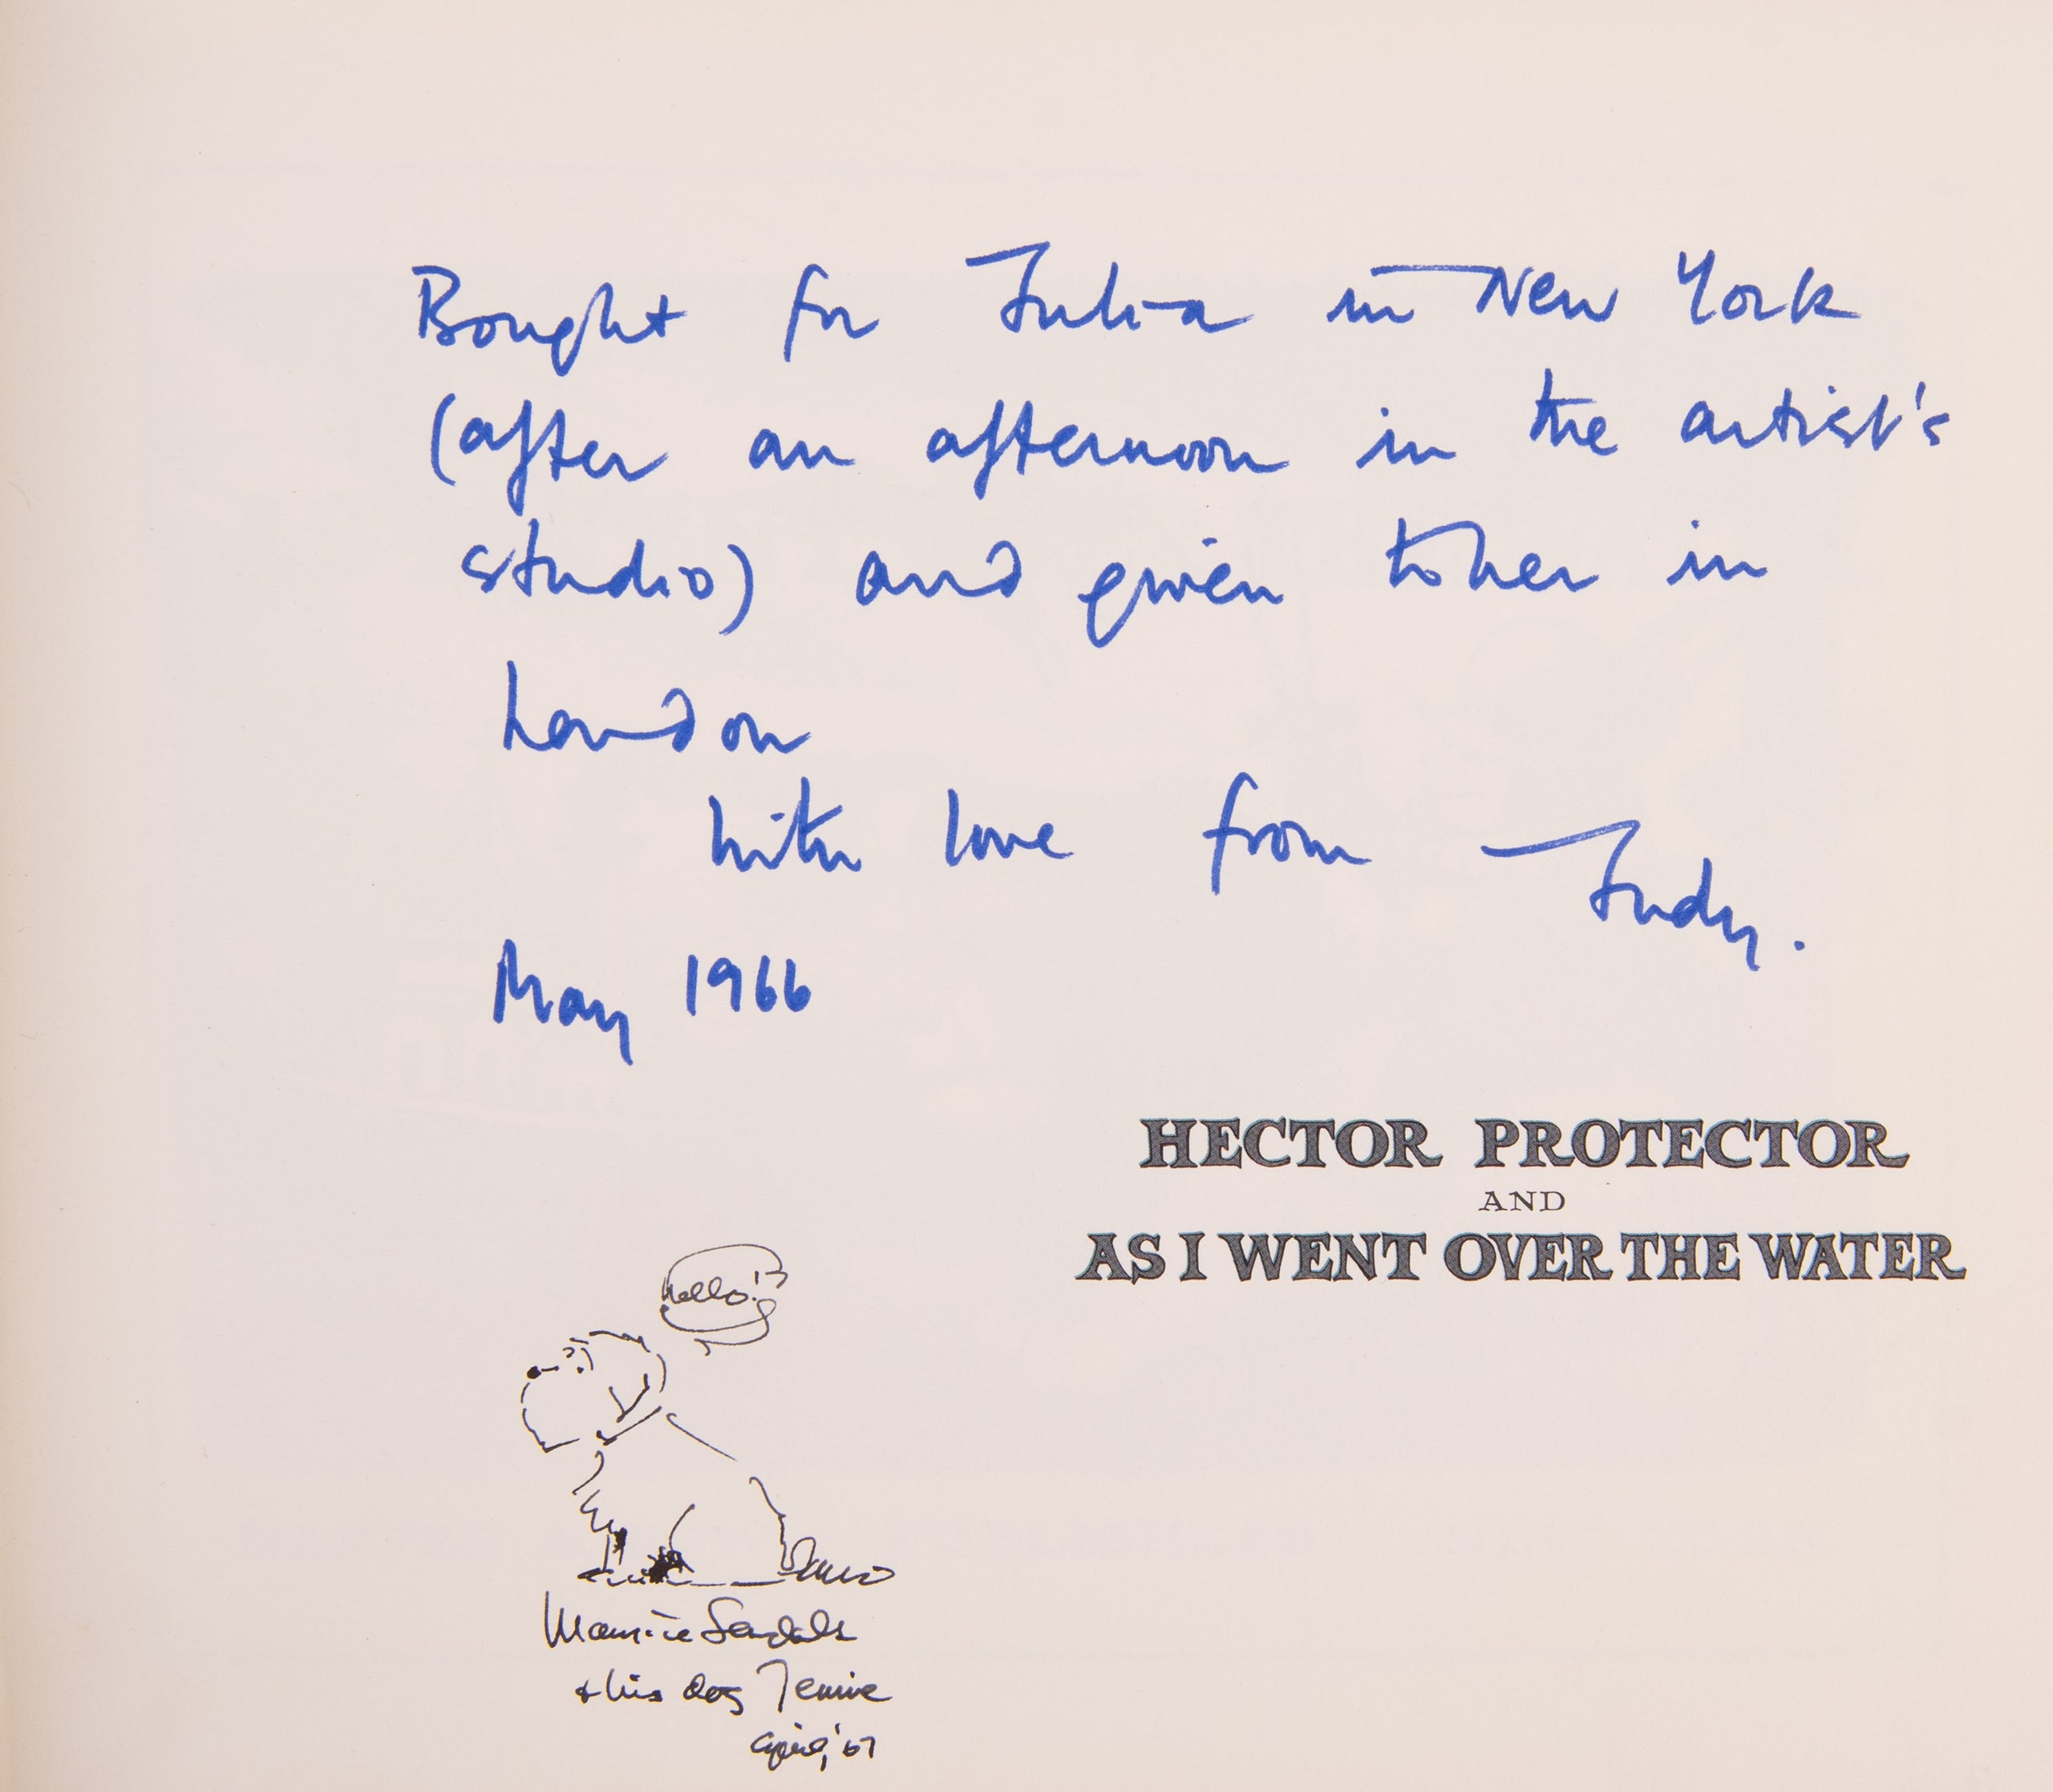 Bought for Julia in New York
(after an afternoon in the artist's
studio) and given to her in
London
with love from Judy.
May 1966
HECTOR PROTECTOR
AND
AS I WENT OVER THE WATER
hello!
Maurice Sendak
+ his dog Jennie
April, '67